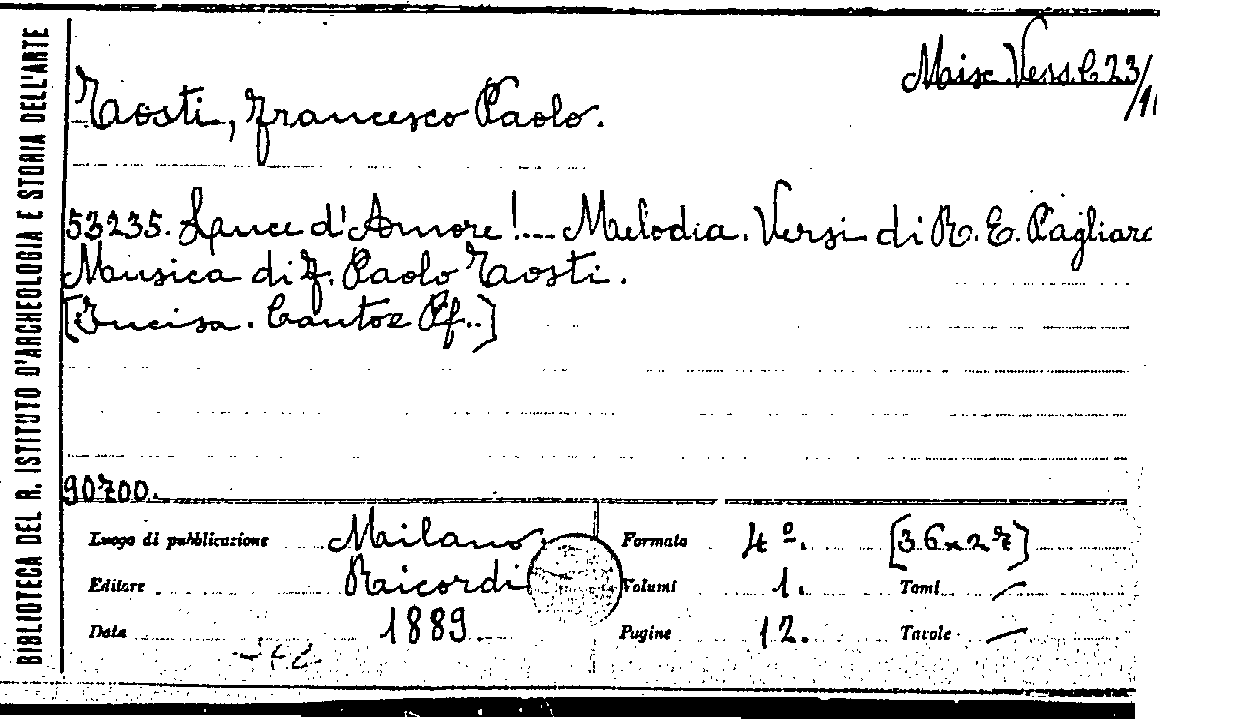 BIBLIOTECA DEL R. ISTITUTO D'ARCHEOLOGIA E STORIA DELL'ARTE
Misc. Vess. C 23/
Tosti, Francesco Paolo.
53235. Lance d'Amore!... Melodia. Versi di R. E. Pagliara
Musica di F. Paolo Tosti.
[Incisa. Canto e Pf..]
90700.
Luogo di pubblicazione Milano Formato 4º. [36x27]
Editore Ricordi Volumi 1. Tomi —
Data 1889. Pagine 12. Tavole —